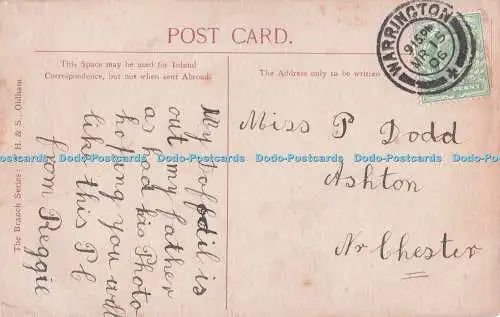 POST CARD.
This Space may be used for Inland
Correspondence, but not when sent Abroad.
The Address only to be written
The Branch Series
H. & S., Oldham.
WARRINGTON
MR 15
06
PENNY
My Daffodil is
out my father
as had his Photo
hoping you will
like this P C
from Reggie
Miss P Dodd
Ashton
Nr Chester
Dodo-Postcards Dodo-Postcards Dodo-Postcards Dodo-Postcards Dodo-Postcards Dodo-Postcards